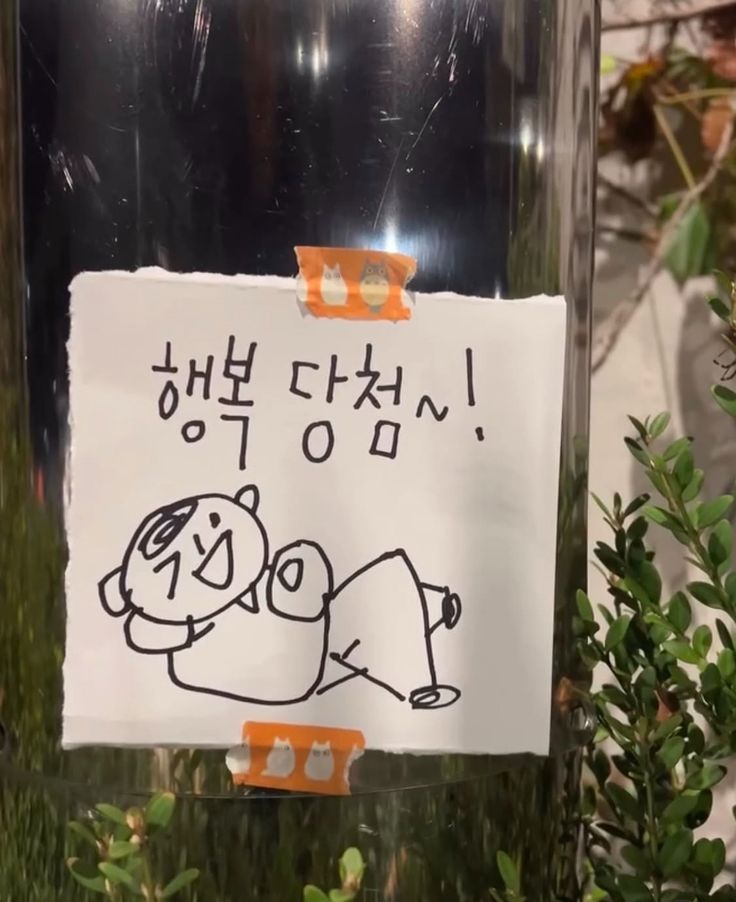 행복 당첨~!